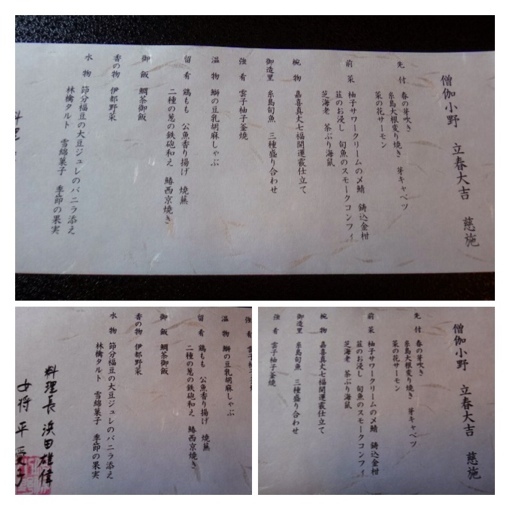 僧伽小野　立春大吉　慈施
先付　春の芽吹き
糸島大根炙り焼き　芽キャベツ
菜の花サーモン
前菜　柚子サワークリームのメ鯖　鋳込金柑
菜のお浸し　旬魚のスモークコンフィ
芝海老　茶ぶり海鼠
椀物　嘉喜真丈七福開運萩仕立て
御造里　糸島旬魚　三種盛り合わせ
強肴　雲子柚子釜焼
温物　鰤の豆乳胡麻しゃぶ
留肴　鶏もも　公魚香り揚げ　焼蕪
二種の葱の鉄砲和え　鰆西京焼き
御飯　鯛茶御飯
香の物　伊都野菜
水物　節分福豆の大豆ジュレのバニラ添え
林檎タルト　雪綿菓子　季節の果実
料理
強肴
温物　鰤の豆乳胡麻しゃぶ
留肴　鶏もも　公魚香り揚げ　焼蕪
二種の葱の鉄砲和え　鰆西京焼き
御飯　鯛茶御飯
香の物　伊都野菜
水物　節分福豆の大豆ジュレのバニラ添え
林檎タルト　雪綿菓子　季節の果実
料理長　浜田雄偉
女将　平
僧伽小野　立春大吉　慈施
先付　春の芽吹き
糸島大根炙り焼き　芽キャベツ
菜の花サーモン
前菜　柚子サワークリームのメ鯖　鋳込金柑
菜のお浸し　旬魚のスモークコンフィ
芝海老　茶ぶり海鼠
椀物　嘉喜真丈七福開運萩仕立て
御造里　糸島旬魚　三種盛り合わせ
強肴　雲子柚子釜焼